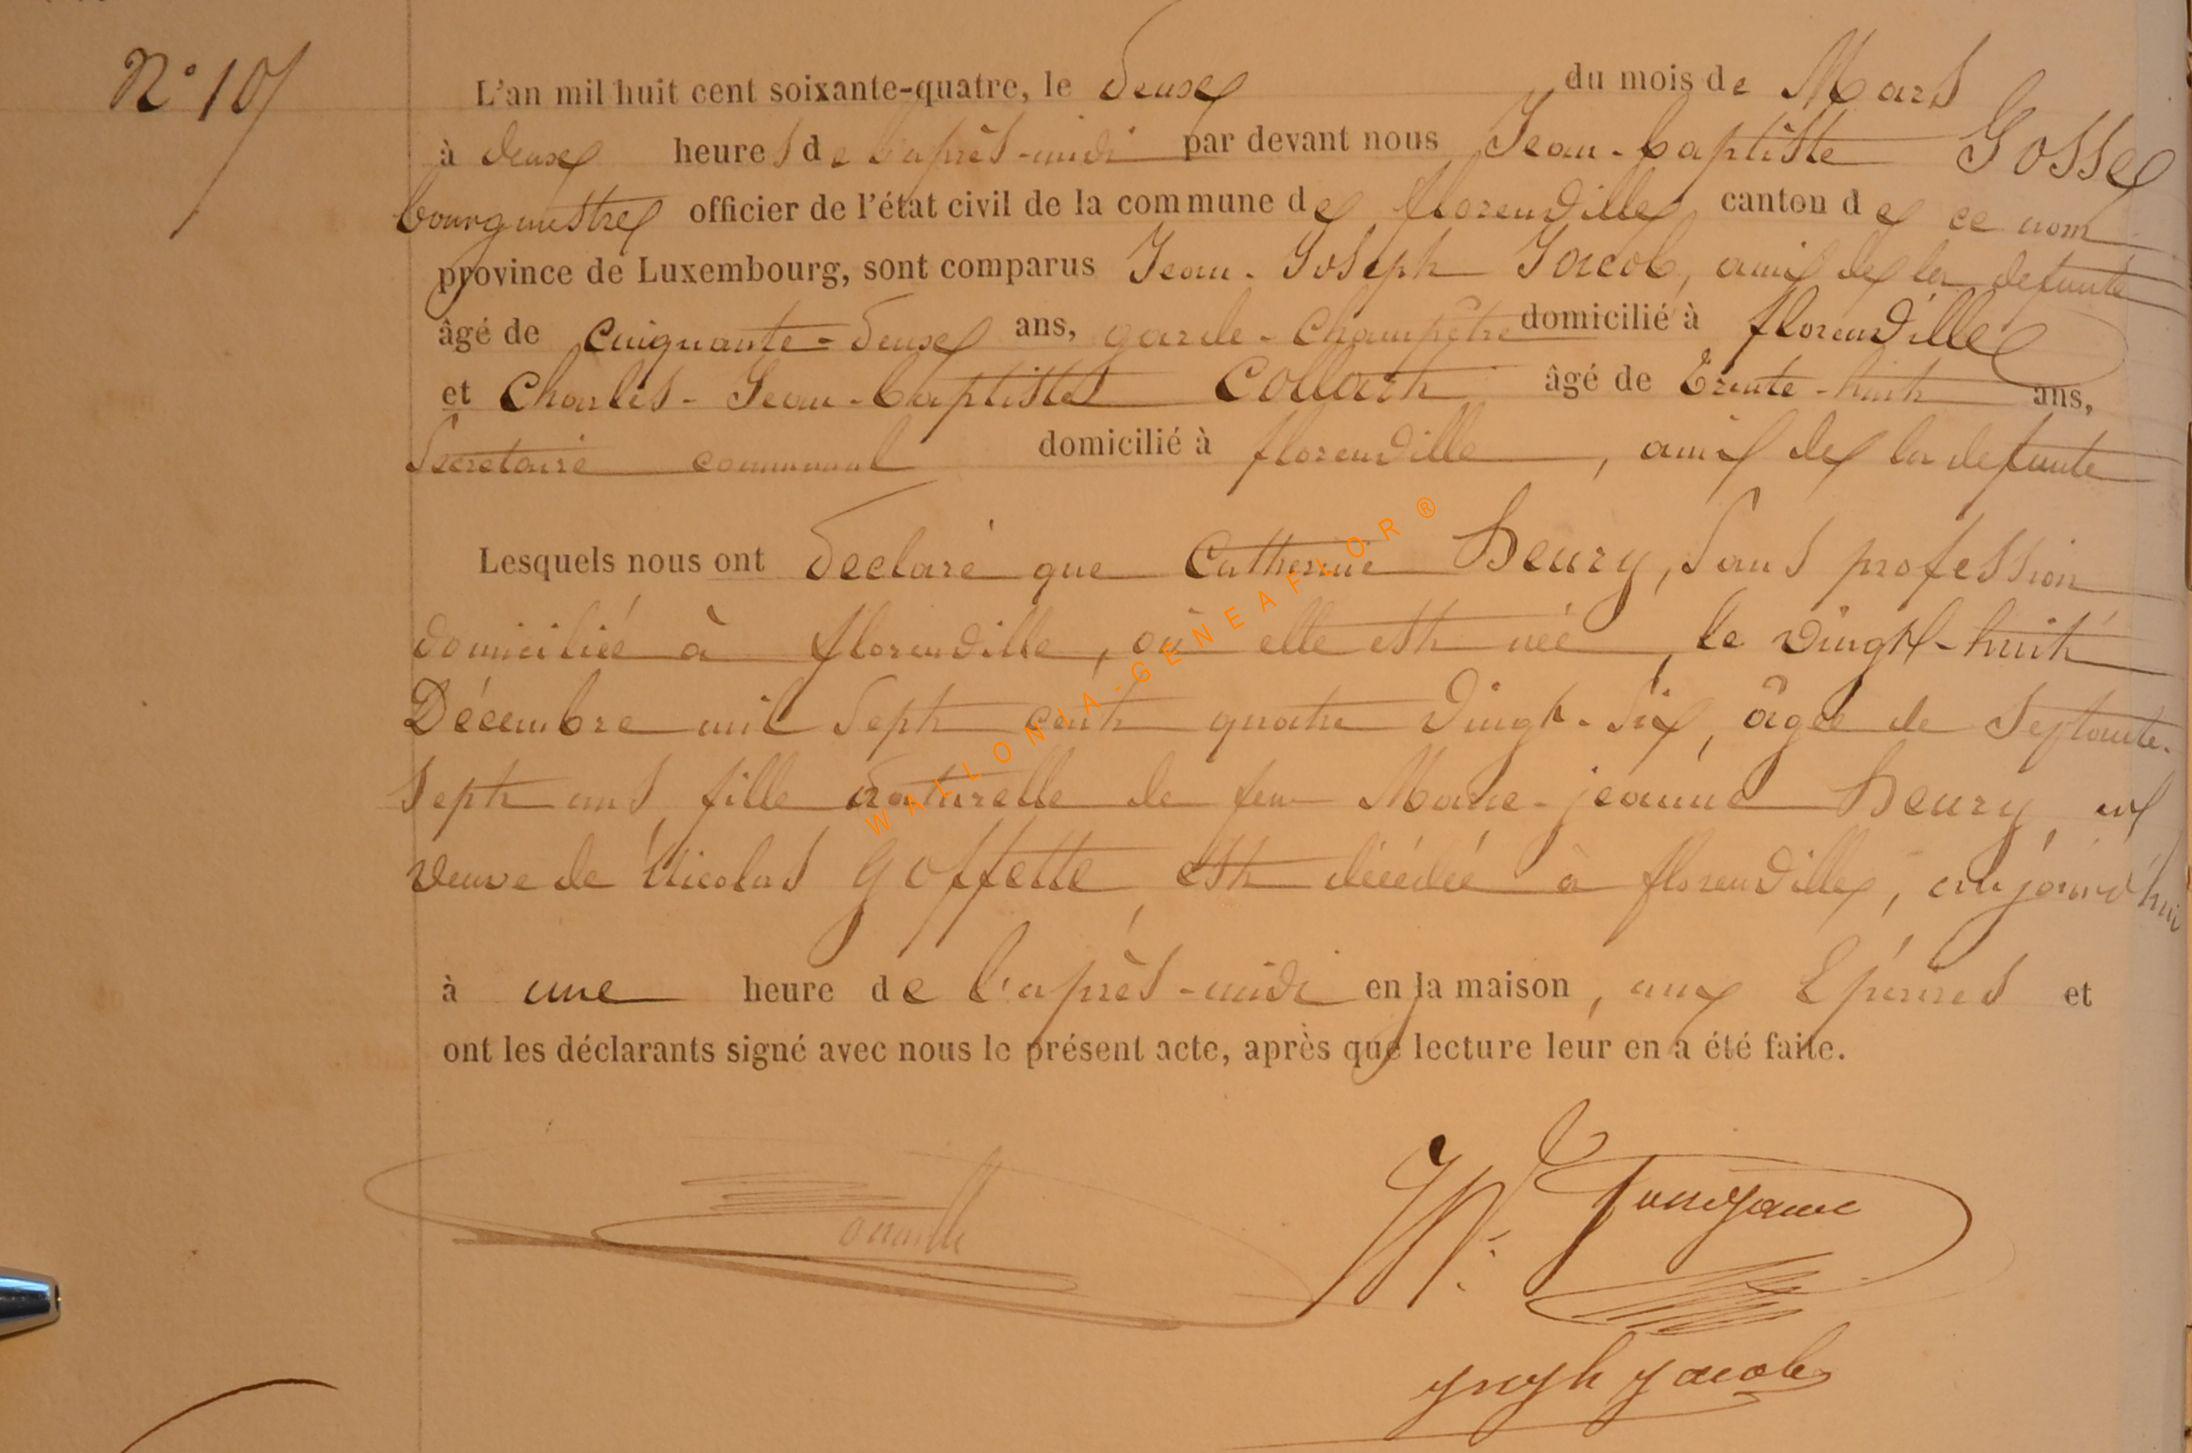 N° 10
L'an mil huit cent soixante-quatre, le deux du mois de Mars
à deux heures de l'après-midi par devant nous Jean-baptiste Gosse
bourgmestre officier de l'état civil de la commune de florenville, canton de ce nom
province de Luxembourg, sont comparus Jean-Joseph Jacob, ami de la defunte
âgé de cinquante-deux ans, garde-champêtre domicilié à florenville
et Charles-Jean-baptiste Collart âgé de trente-huit ans,
Secretaire communal domicilié à florenville, ami de la defunte
Lesquels nous ont declaré que Catherine henry, sans profession
domiciliée à florenville, où elle est née, le vingt-huit
Décembre mil sept cent quatre vingt-six, âgée de septante-
sept ans, fille naturelle de feu Marie-jeanne henry, et
veuve de Nicolas goffette, est décédée à florenville, aujourd'hui
à une heure de l'après-midi en la maison, aux Epines et
ont les déclarants signé avec nous le présent acte, après que lecture leur en a été faite.
Jacob
WALLONIA-GENEAFLOR ®